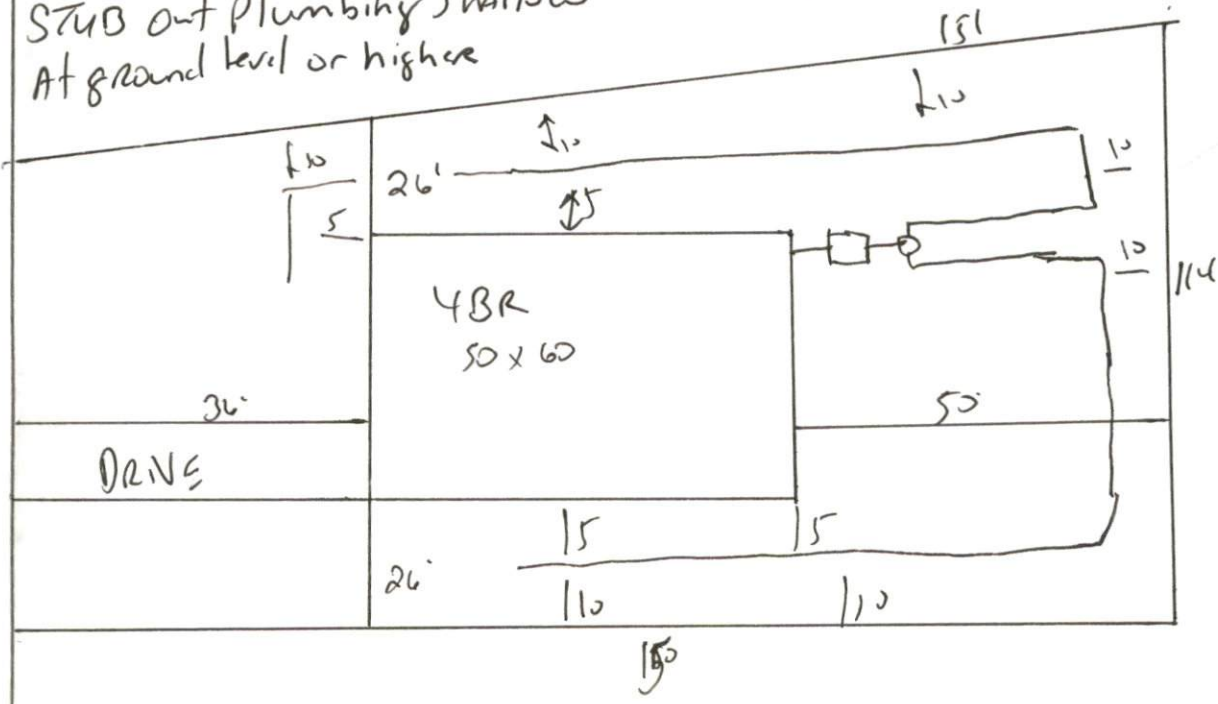 STUB out Plumbing SHALLOW
At ground level or higher
151
10
10
10
5
26'
5
10
10
114
4BR
50 x 60
36'
50'
DRIVE
5
5
26'
10
10
150